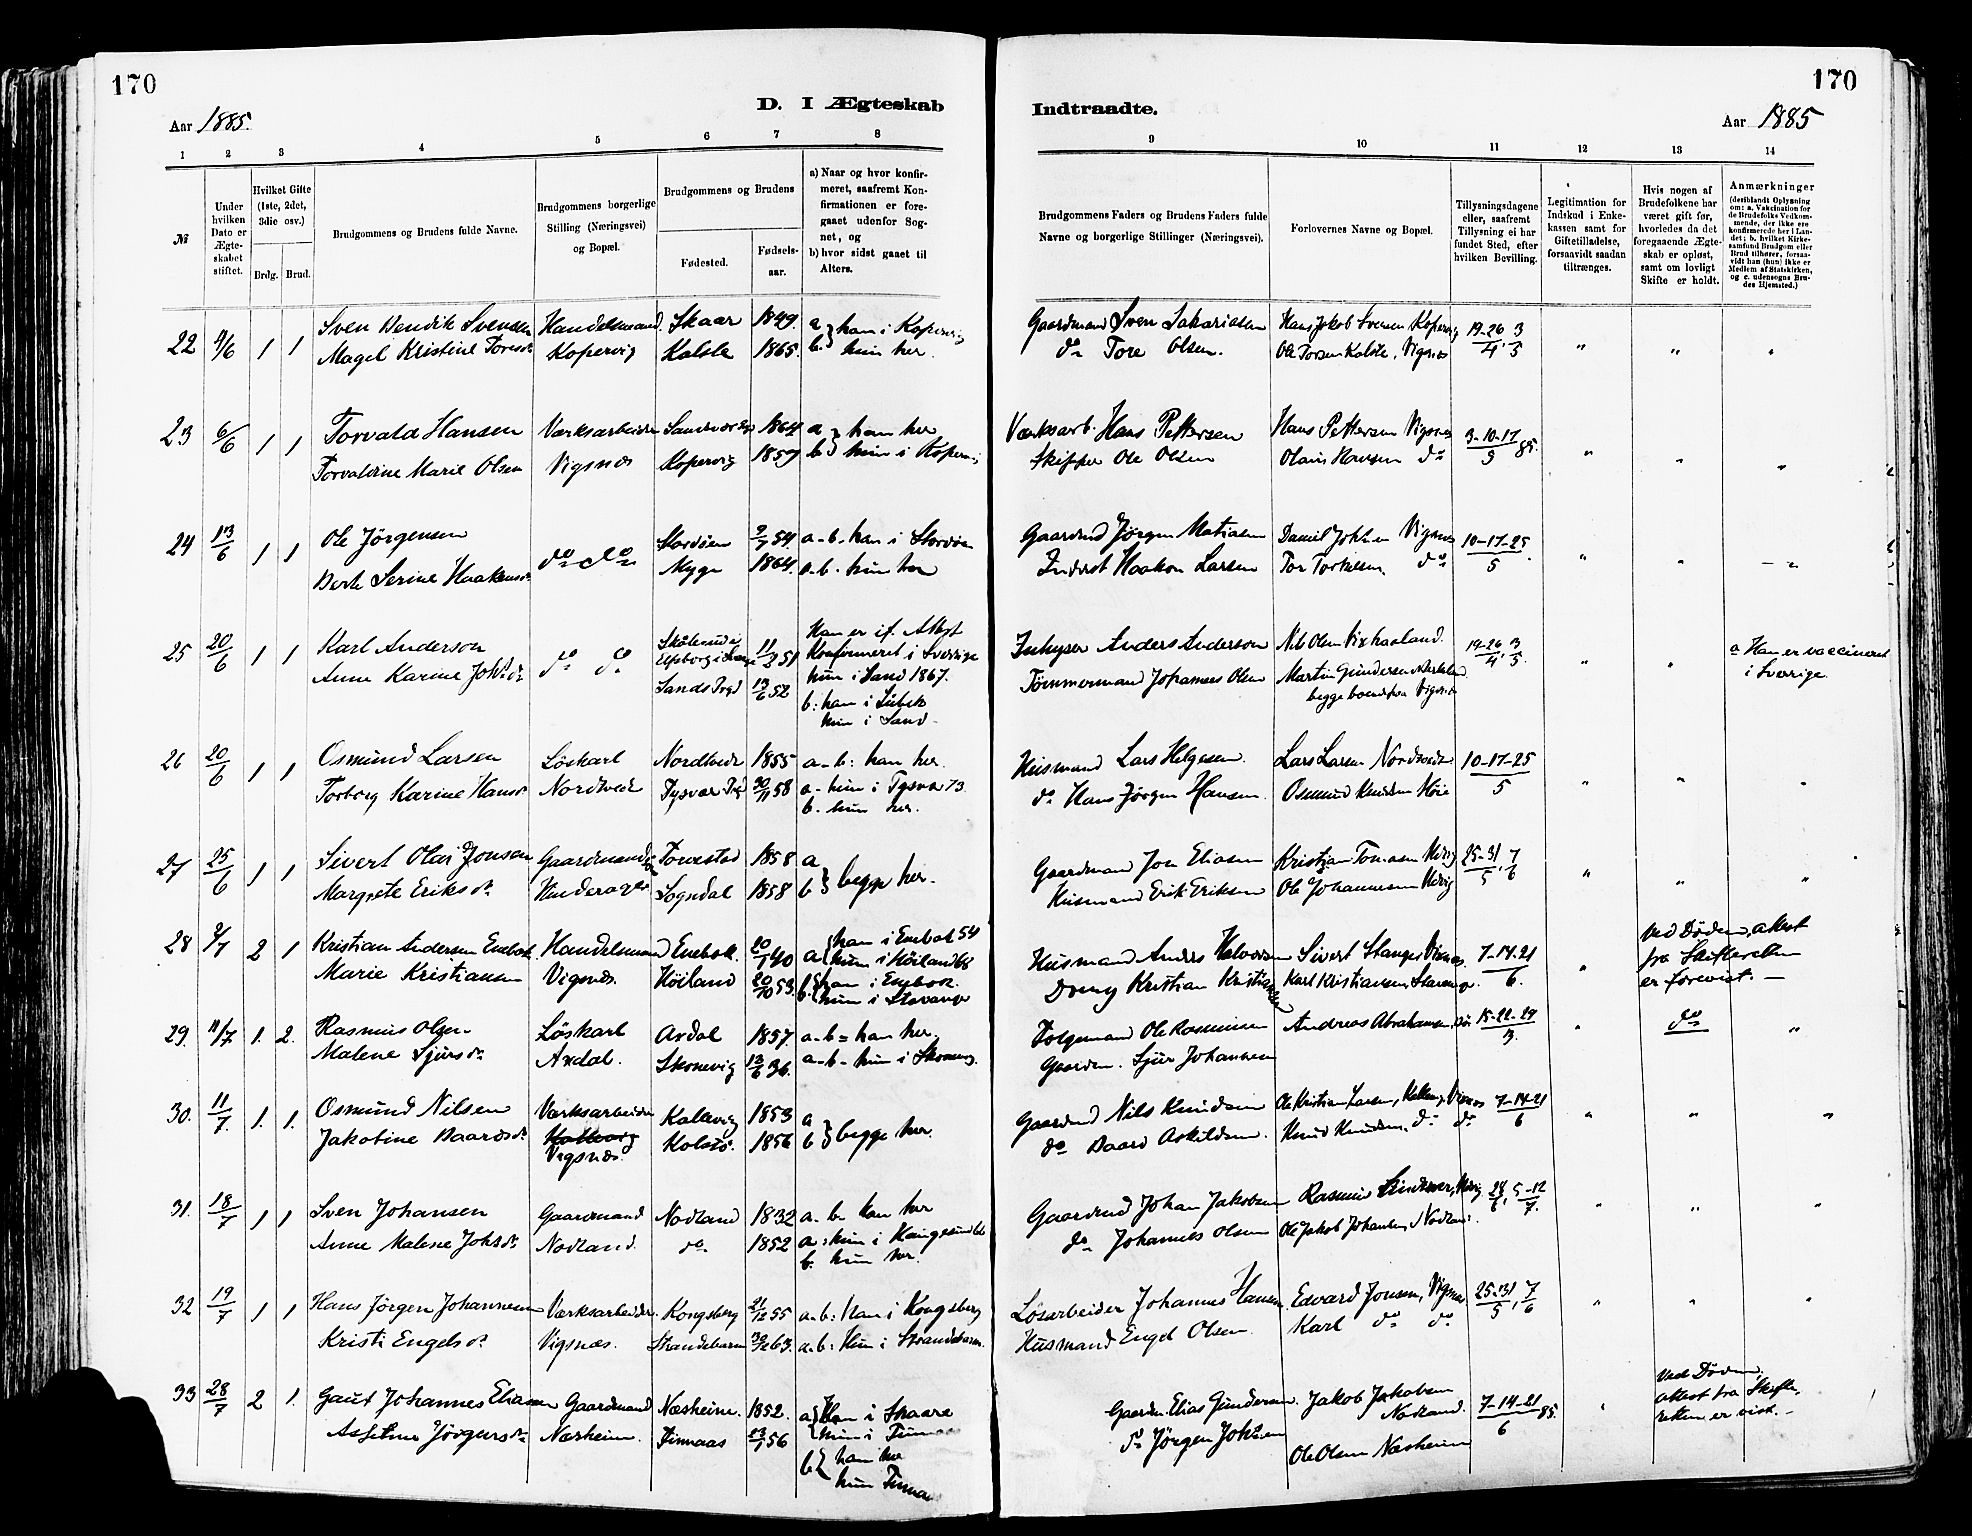 170
170
D. I Ægteskab Indtraadte.
Aar 1885.
Aar 1885
1 2 3 4 5 6 7 8 9 10 11 12 13 14
№
Under hvilken Dato er Ægteskabet stiftet.
Hvilket Gifte (1ste, 2det, 3die osv.)
Brdg. Brud.
Brudgommens og Brudens fulde Navne.
Brudgommens borgerlige Stilling (Næringsvei) og Bopæl.
Brudgommens og Brudens
Fødested.
Fødselsaar.
a) Naar og hvor konfirmeret, saafremt Konfirmationen er foregaaet udenfor Sognet, og
b) hvor sidst gaaet til Alters.
Brudgommens Faders og Brudens Faders fulde Navne og borgerlige Stillinger (Næringsvei).
Forlovernes Navne og Bopæl.
Tillysningsdagene eller, saafremt Tillysning ei har fundet Sted, efter hvilken Bevilling.
Legitimation for Indskud i Enkekassen samt for Giftetilladelse, forsaavidt saadan tiltrænges.
Hvis nogen af Brudefolkene har været gift før, hvorledes da det foregaaende Ægteskab er opløst, samt om lovligt Skifte er holdt.
Anmærkninger
(deriblandt Oplysning om: a. Vakcination for de Brudefolks Vedkommende, der ikke ere konfirmerede her i Landet; b. hvilket Kirkesamfund Brudgom eller Brud tilhører, forsaavidt han (hun) ikke er Medlem af Statskirken, og c. udensogns Brudes Hjemsted.)
22 1 1 Sven Henrik Svensen Handelsmand Skaar 1849. a } han i Kopervig Gaardmand Sven Sakariasen Hans Jakob Svensen Kopervig 19-26/4, 3/5
Magel Kristine Toresdr Kopervig Kolstø 1865. b. } hun her. do Tore Olsen. Ole Torsen Kolstø, Vigsnes
23 6/6 1 1 Torvald Hansen Værksarbeider 1864 a } han her Værksarb. Hans Pettersen Hans Pettersen Vigsnes 3-10-17/5 85.
Torvaldine Marie Olsen Vigsnes Kopervig 1859 b } hun i Kopervig Skipper Ole Olsen Olaus Hansen do
24 13/6 1 1 Ole Jörgensen do do Stordöen 54. a-b- han i Stordöen Gaardmd Jørgen Matiasen Daniel Vigsnes 10-17-25/5
Berte Serine Haakensdr Myge 1864. a-b. hun her Inderst Haakon Larsen Tor Torkelsen. do
25 20/6 1 1 Karl Anderson do do Elfsborg 11/2 51 Han er if. Attest Konfirmeret i Sverrige Inhyser Anders Anderson Nils Olsen Vixhaaland. 19-26/4, 3/5 a Han er vaccineret i Sverrige.
Anne Karine Johsdr Sands Prgd 13/6 52 hun i Sand 1867. Tømmermand Johannes Olsen Martin Gundersen begge boende paa Vigsnes
b: han i Lübek
hun i Sand
26 20/6 1 1 Osmund Larsen Löskarl Nordtveit 1855 a-b: han her. Husmand Lars Helgesen. Lars Larsen Nordtveit 10-17-25/5
Torborg Karine Hansdr Nordtveit Tysvær Prgd 30/11 58 a- hun i Tysvær 73. do Hans Jørgen Hansen. Osmund Knudsen Höie
b. hun her.
27 25/6 1 1 Sivert Olai Jonsen Gaardmand Torvestad 1858 a } begge her. Gaardmand Jon Eliasen Kristjan Tomasen 25-31/5, 7/6
Margrete Eriksdr Hinderager Sogndal 1858 b Husmand Erik Eriksen Ole Johannesen
28 2/7 2 1 Kristian Andersen Enebak Handelsmand Enebak. 40 a { han i Enebak 54 Husmand Anders Halvorsen Sivert Stanger Vigsnes. 7-14-21/6. Ved Døden, attest fra Skifteretten er forevist. —
Marie Kristiansen Vigsnes. Höiland 20/10 53. hun i Höiland 68 Kristian Kristiansen Karl Kristiansen, Stavanger.
b. { han i Enebak.
hun i Stavanger
29. 11/7 1. 2. Rasmus Olsen Löskarl Avdal 1857. a-b = han her. Ole Rasmussen Andreas Abrahamsen 15-22-29/3. do
Malene Sjursdr Avdal. Skonevig 13/6 36. a-b- hun i Skonevig. Gaardm. Sjur Johansen
30. 11/7. 1. 1. Osmund Nilsen Værksarbeider Kallevig 1853 a } begge her. Gaardmd Nils Knudsen Ole Kristian Larsen, Vigsnes 7-14-21/6
Jakobine Baardsdr Kallevig Vigsnes. Kolstö. 1856 b do Baard Askildsen. Knud Knudsen, do do
31. 18/7 1 1 Sven Johansen Gaardmand Nodland 1832 a-b- han her Gaardmd Johan Jakobsen Rasmus 28/6, 5-12/7.
Anne Malene Johsdr Nodland. do. 1852 a: hun i Haugesund do Johannes Olsen Ole Jakob Johansen, Nodland.
b. hun her.
32 19/7 1 1 Hans Jörgen Johannesen Værksarbeider Kongsberg 21/12 55 a-b: Han i Kongsberg Løsarbeider Johannes Hansen Edvard Jonsen, Vigsnes 25-31/5, 7/6
Kristi Engelsdr Vigsnæs. Strandebarm 63. a-b: Hun i Strandebarm. Husmand Engel Olsen. Karl do do
33 28/7 2 1. Gaut Johannes Eliasen Gaardmand Næsheim. 1852. a { Han i Skaare Gaardm. Elias Gundersen Jakob Jakobsen Nodland. 7-14-21/6 85. Ved Døden, attest fra Skifteretten er vist. —
Jörgensdr Næsheim. Finnaas 56 hun i Finnaas do Jörgen Johsen Ole Olsen Næsheim
b { han her
hun Finnaas